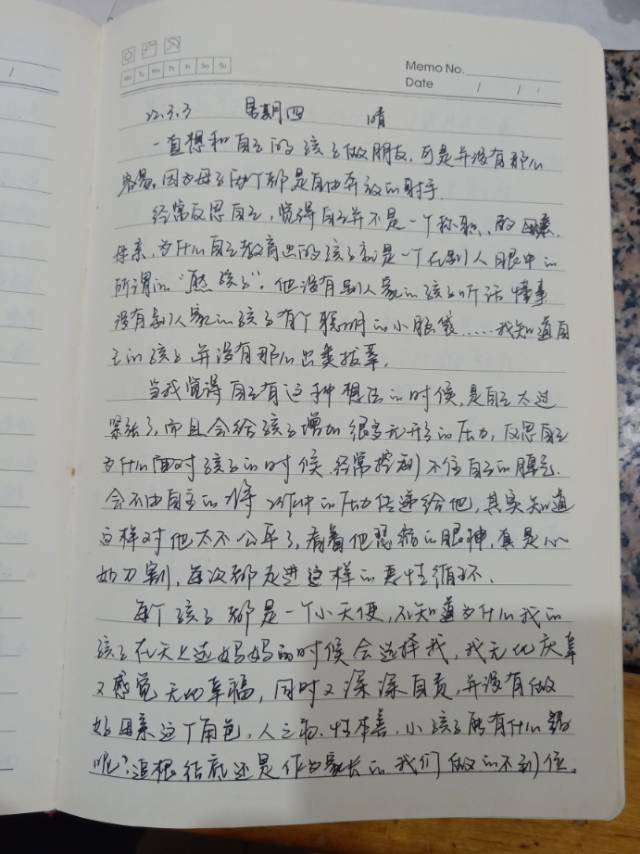 Memo No.
Mo Tu We Th Fr Sa Su
Date / /
22.3.3 星期四 晴
一直想和自己的孩子做朋友,可是并没有那么
容易,因为母子两个都是自由奔放的射手.
经常反思自己,觉得自己并不是一个称职的母亲.
母亲,为什么自己教育出的孩子就是一个在别人眼中的
所谓的“熊孩子”.他没有别人家的孩子听话懂事
没有别人家的孩子有个聪明的小脑袋......我知道自
己的孩子并没有那么出类拔萃.
当我觉得自己有这种想法的时候,是自己太过
紧张了,而且会给孩子增加很多无形的压力,反思自己
为什么面对孩子的时候.经常控制不住自己的脾气.
会不由自主的将工作中的压力传递给他,其实知道
这样对他太不公平了,看着他恐惧的眼神,真是心
如刀割,每次都走进这样的恶性循环.
每个孩子都是一个小天使,不知道为什么我的
孩子在天上选妈妈的时候会选择我,我无比庆幸
又感觉无比幸福,同时又深深自责,并没有做
好母亲这个角色,人之初.性本善.小孩子能有什么错
呢?追根结底还是作为家长的我们做的不到位.